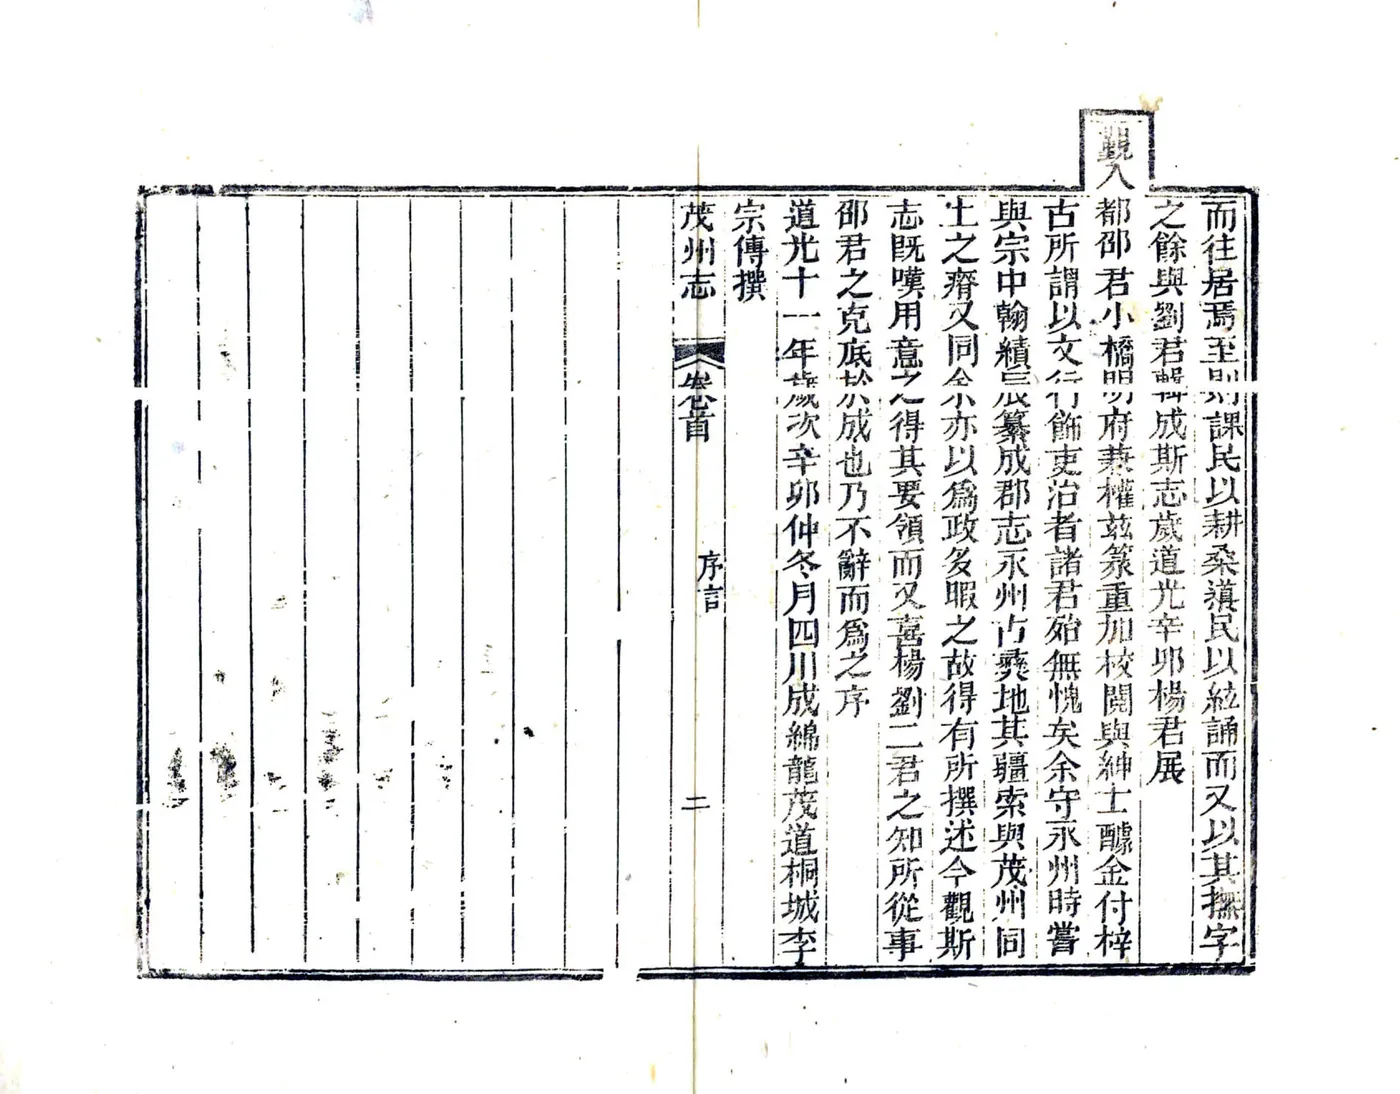 而往居焉至則課民以耕桑導民以絃誦而又以其撫字
之餘與劉君輯成斯志歲道光辛卯楊君展
覲入
都邵君小橋明府兼權茲篆重加校閱與紳士醵金付梓
古所謂以文行飾吏治者諸君殆無愧矣余守永州時嘗
與宗中翰績辰纂成郡志永州古彝地其疆索與茂州同
土之瘠又同余亦以爲政多暇之故得有所撰述今觀斯
志既嘆用意之得其要領而又喜楊劉二君之知所從事
邵君之克底於成也乃不辭而爲之序
道光十一年歲次辛卯仲冬月四川成綿龍茂道桐城李
宗傳撰
茂州志 卷首 序言 二